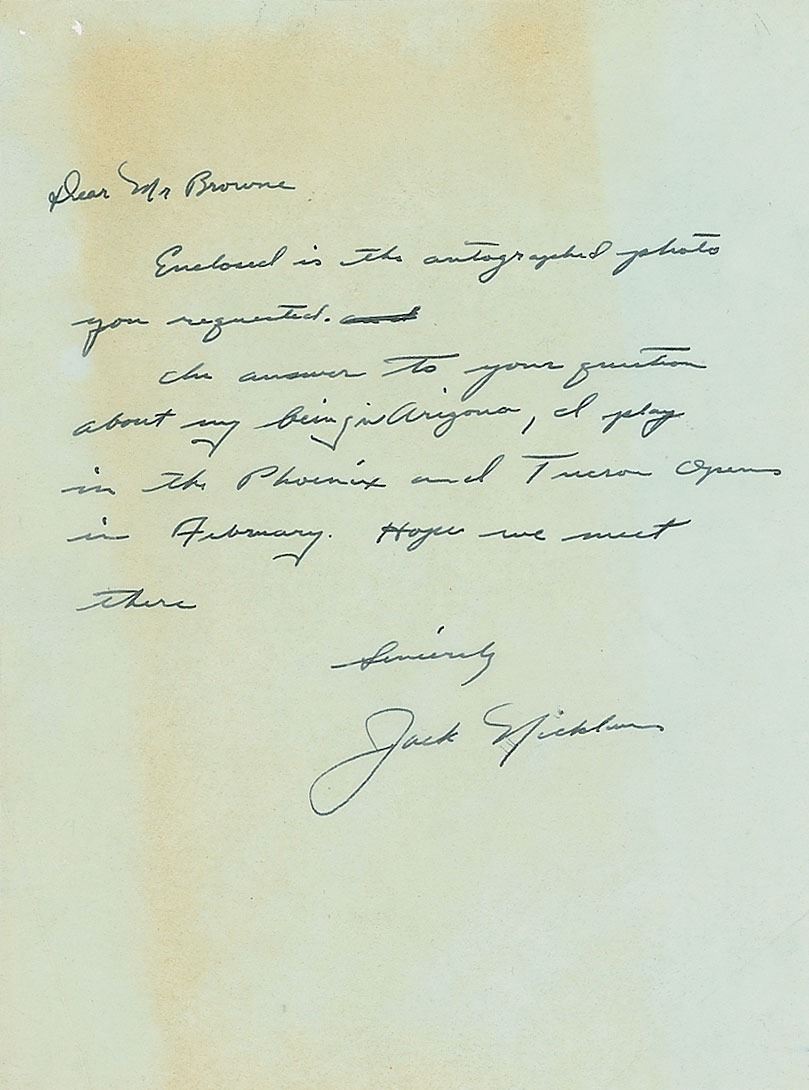 Dear Mr Browne
Enclosed is the autographed photo
you requested. and
In answer to your question
about my being in Arizona, I play
in the Phoenix and Tucson Opens
in February. Hope we meet
there
Sincerely
Jack Nicklaus